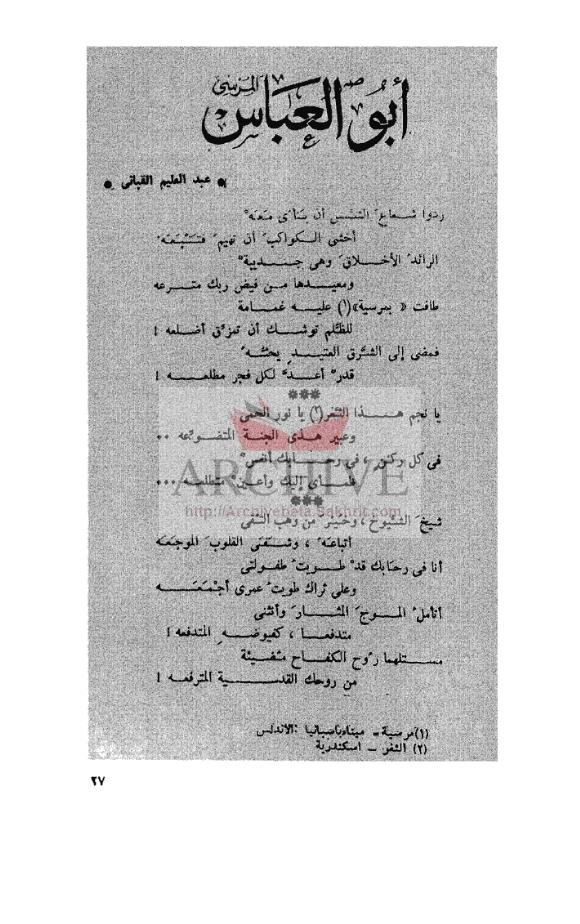 أبو العباس
المرسى
* عبد العليم القبانى *
ردوا شعاع الشمس أن ينأى معه
أخشى الكواكب أن تهيم فتتبعه
الرائد الأخلاق وهى جديبة
ومعيدها من فيض ربك مترعه
طافت « بمرسية»(١) عليه غمامة
للظلم توشك أن تمزق أضلعه !
فمضى إلى الشرق العتيد يحثه
قدر أعد لكل فجر مطلعه !
***
يا نجم هذا الثغر(٢) يا نور الحمى
وعبير هدى الجنة المتضوعه ..
فى كل ركن ، فى رحابك أنفس
إليك وأعين متطلعه ...
***
شيخ الشيوخ ، وخير من وهب الشفى
أتباعه ، وشفى القلوب الموجعه
أنا فى رحابك قد طويت طفولتى
وعلى ثراك طويت عمرى أجمعه
أتأمل الموج المثار وأنثنى
متدفعا ، كفيوضه المتدفعه !
مستلهما روح الكفاح مضيئة
من روحك القدسية المترفعه !
(١)مرسية ــ ميناء باسبانيا :الأندلس
(٢) الثغر ــ اسكندرية
٢٧
ARCHIVE
http://Archivebeta.Sakhrit.com